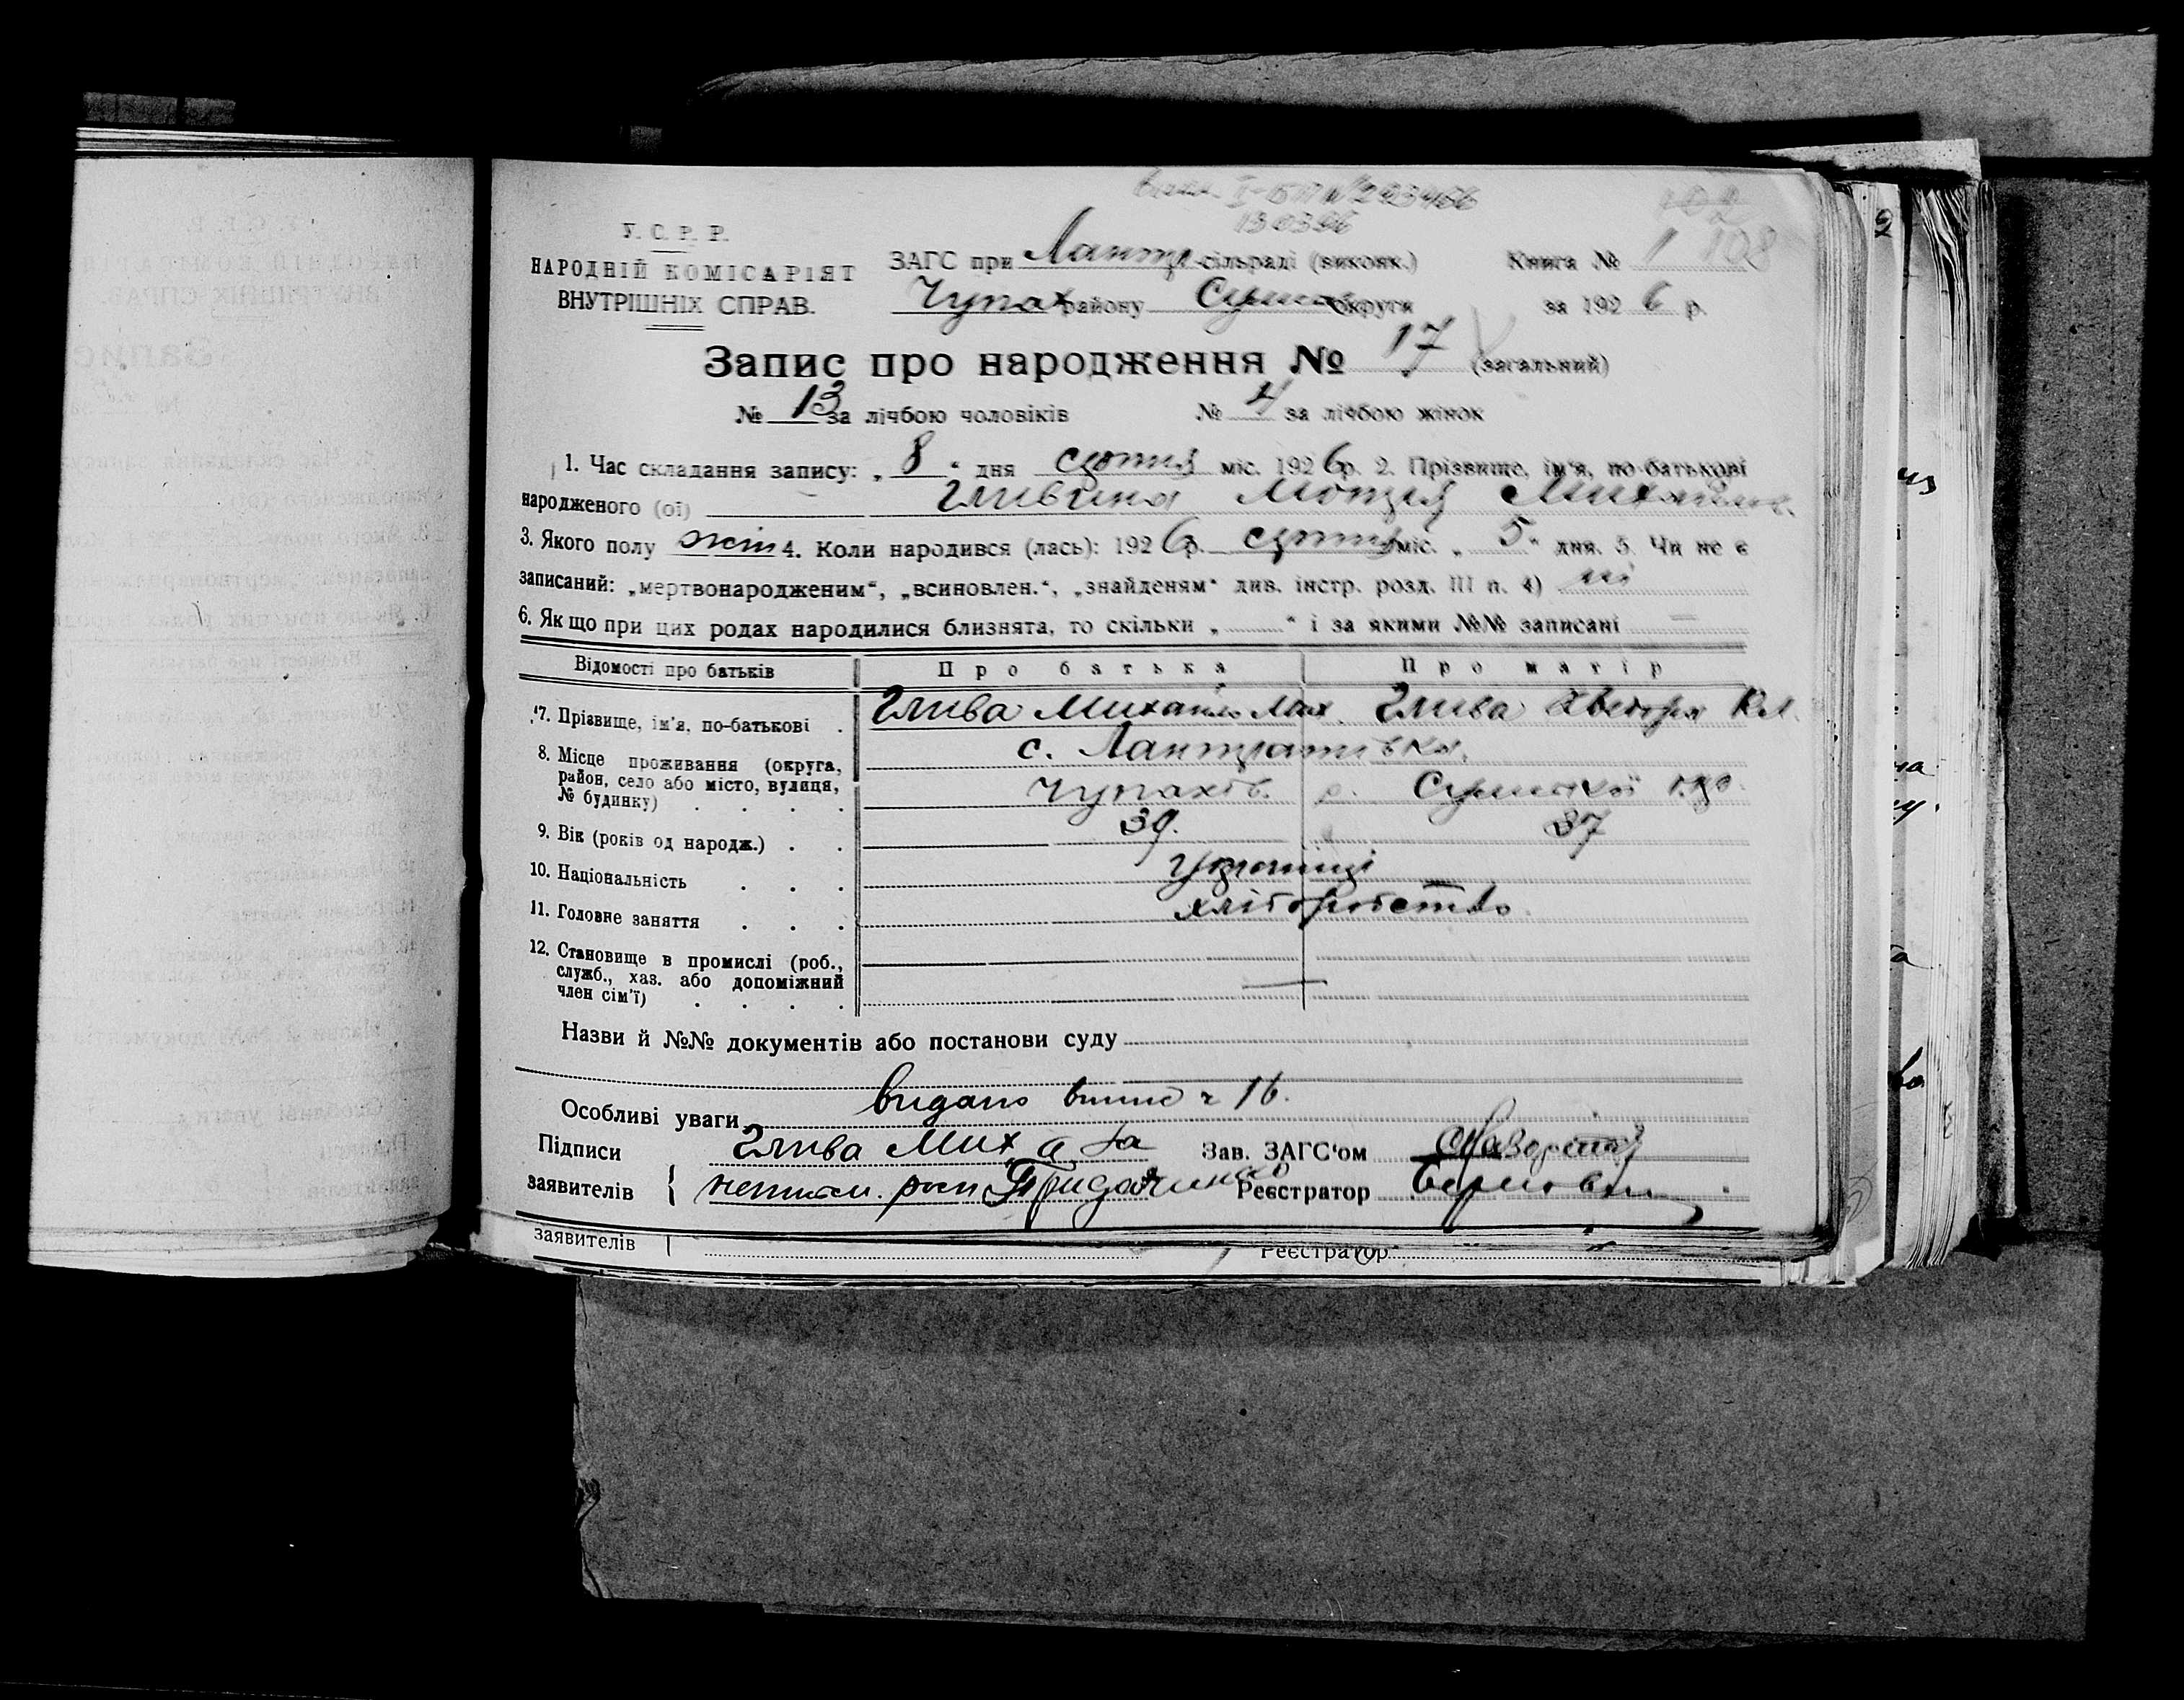 У. С. Р. Р.
НАРОДНІЙ КОМІСАРІЯТ
ВНУТРІШНІХ СПРАВ.
ЗАГС при Лантр сільраді (виконк.)
Чупах району Сумськ округи
Книга № 1 108
за 1926 р.
Запис про народження № 17 (загальний)
№ 13 за лічбою чоловіків № 4 за лічбою жінок
1. Час складання запису: „8“ дня січня міс. 1926 р. 2. Прізвище, ім'я, по-батькові
народженого (ої) Гливина Мотря Михайлов.
3. Якого полу жін 4. Коли народився (лась): 1926 р. січня міс. „5“ дня. 5. Чи не є
записаний: „мертвонародженим“, „всиновлен.“, „знайденям“ див. інстр. розд. III п. 4) ні
6. Якщо при цих родах народилися близнята, то скільки „ “ і за якими №№ записані —
Відомості про батьків Про батька Про матір
7. Прізвище, ім'я, по-батькові . Глива Михайло Мих. Глива Хведора Кл.
8. Місце проживання (округа, район, село або місто, вулиця, № будинку) . . . .
с. Лантратівка,
Чупахів. р. Сумської
9. Вік (років од народж.) . . 39. 37
10. Національність . . . українці
11. Головне заняття . . . хліборобство
12. Становище в промислі (роб., служб., хаз. або допоміжний член сім'ї) . . . . —
Назви й №№ документів або постанови суду
Особливі уваги видано випис ч 16.
Підписи Глива Мих а за Зав. ЗАГС'ом
заявителів { неписм. росп Реєстратор
заявителів Реєстратор